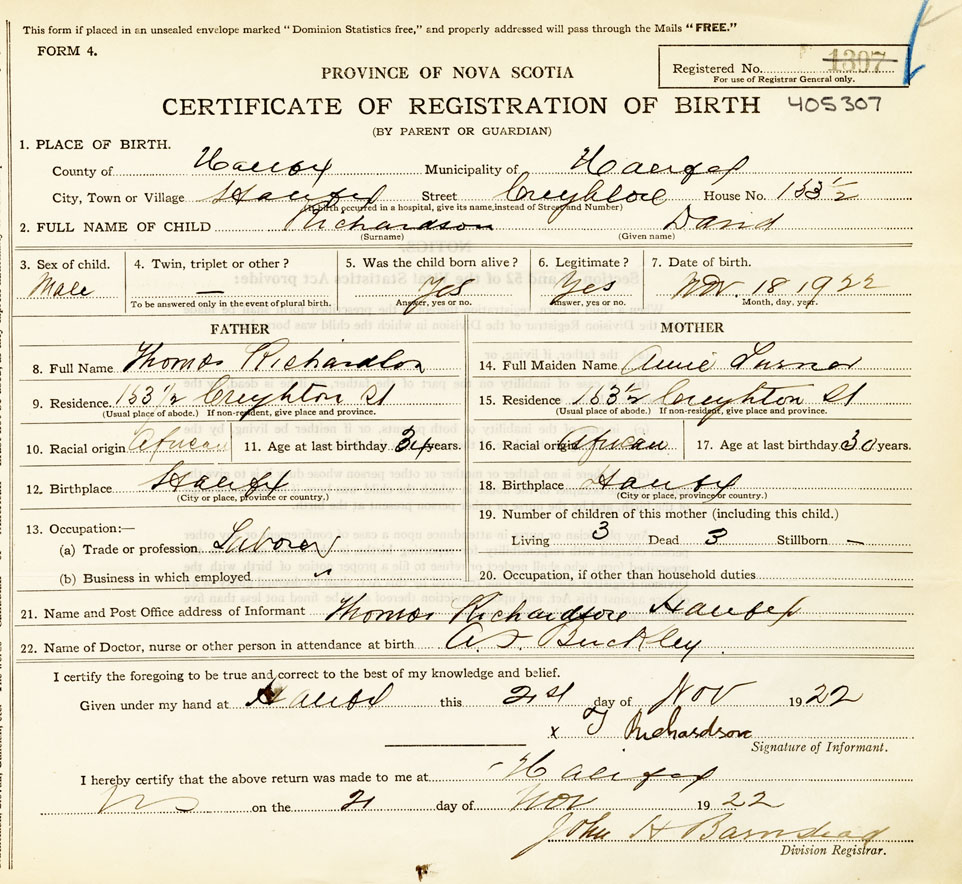 This form if placed in an unsealed envelope marked "Dominion Statistics free," and properly addressed will pass through the Mails "FREE."
FORM 4.
Registered No. 1307
For use of Registrar General only.
PROVINCE OF NOVA SCOTIA
CERTIFICATE OF REGISTRATION OF BIRTH 405307
(BY PARENT OR GUARDIAN)
1. PLACE OF BIRTH.
County of Halifax Municipality of Halifax
City, Town or Village Halifax Street Creighton House No. 153 1/2
(If birth occurred in a hospital, give its name, instead of Street and Number)
2. FULL NAME OF CHILD Richardson David
(Surname) (Given name)
3. Sex of child. 4. Twin, triplet or other? 5. Was the child born alive? 6. Legitimate? 7. Date of birth.
Male — Yes Yes Nov. 18 1922
To be answered only in the event of plural birth. Answer, yes or no. Answer, yes or no. Month, day, year.
FATHER MOTHER
8. Full Name Thomas Richardson 14. Full Maiden Name Annie Turner
9. Residence. 153 1/2 Creyghton St 15. Residence 153 1/2 Creyghton St
(Usual place of abode.) If non-resident, give place and province. (Usual place of abode.) If non-resident, give place and province.
10. Racial origin African 11. Age at last birthday 34 years. 16. Racial origin African 17. Age at last birthday 30 years.
12. Birthplace Halifax 18. Birthplace Halifax
(City or place, province or country.) (City or place, province or country.)
13. Occupation:— 19. Number of children of this mother (including this child.)
(a) Trade or profession Laborer Living 3 Dead 3 Stillborn —
(b) Business in which employed " 20. Occupation, if other than household duties
21. Name and Post Office address of Informant Thomas Richardson Halifax
22. Name of Doctor, nurse or other person in attendance at birth Buckley
I certify the foregoing to be true and correct to the best of my knowledge and belief.
Given under my hand at Halifax this 21st day of Nov 1922
x T Richardson
Signature of Informant.
I hereby certify that the above return was made to me at Halifax
NS on the 21 day of Nov 1922
John H Barnstead
Division Registrar.